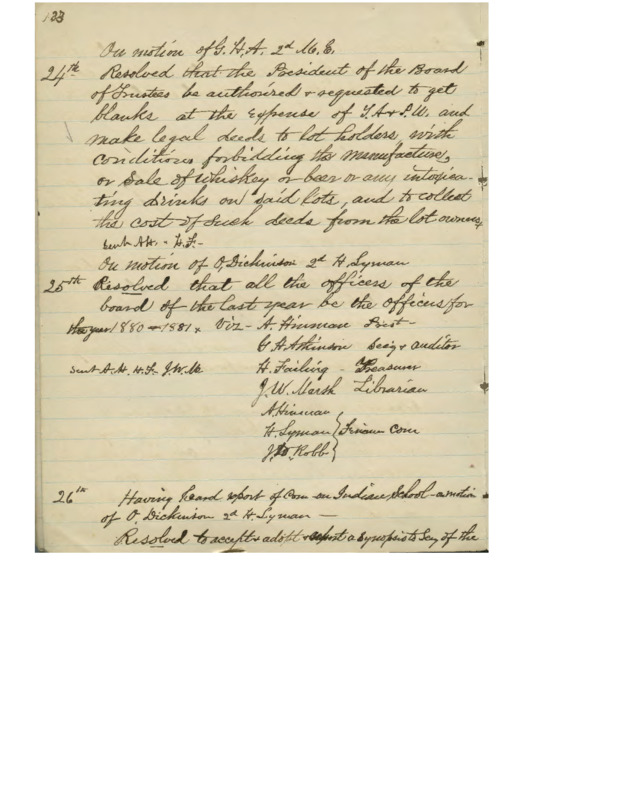 133
On motion of G. H. A. 2d M. E.
24th Resolved that the President of the Board
of Trustees be authorized & requested to get
blanks at the expense of T. A. & P. U. and
make legal deeds to lot holders, with
conditions forbidding the manufacture,
or Sale of whiskey or beer or any intoxica-
ting drinks on said lots, and to collect
the cost of such deeds from the lot owners,
sent A H. & H. F. -
On motion of O. Dickinson 2d H. Lyman
25th Resolved that all the officers of the
board of the last year be the officers for
the year 1880 - 1881, Viz - A. Hinman Prest -
G. H. Atkinson Secy & auditor
sent A. H. H. F. J. W. M. H. Failing - Treasurer
J. W. Marsh Librarian
A. Hinman
H. Lyman Com
J. D. Robb
26th Having heard report of Com on Indian School - on motion
of O. Dickinson 2d H. Lyman -
Resolved to accept & adopt & a Synopsis to Secy of the